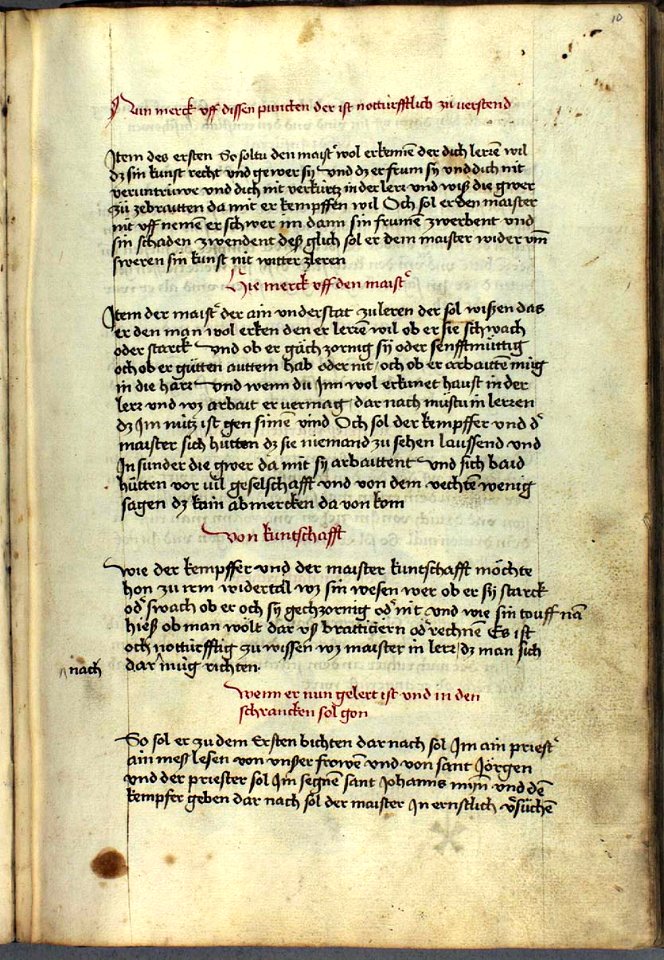 10
Nun merck vff dissen puncten der ist notturfftlich zu verstend
Item des ersten So soltu den maist' wol erkennē der dich lerenē wil
dz sin kunst recht vnd gewer sy vnd dz er frum sy vnd dich nit
veruntrüwe vnd dich nit verkürtz in der ler vnd wiß die gwer
zů zebraitten da mit er kempffen wil Och sol er den maister
nit vff nemen er schwer im dann sin frumen zwerbent vnd
sin schaden zwendent deß glich sol er dem maister wider vm̄
sweren sin kunst nit witter zleren
Hie merck vff den maist'
Item der maist' der ain vnderstat zu leren der sol wißen das
er den man wol erken den er lerenē wil ob er sie schwach
oder starck vnd ob er gäch zornig sy oder senfftmüttig
och ob er gütten auttem hab oder nit / och ob er arbaittē müg
in die harr vnd wenn du Inn wol erkunet haust in der
lerr vnd wz arbait er vermag / dar nach můstu in lerzen
dz Im nütz ist gen sinen vind Och sol der kempffer vnd d'
maister sich hütten dz sie niemand zu sehen laussend vnd
In sunder die gwer da mit sy arbaittent vnd sich baid
hütten vor vil gselschafft vnd von dem vechte wenig
sagen dz kain abmercken da von kom
Von kuntschafft
Wie der kempffer vnd der maister kuntschafft möchte
hon zu irm widertail wz sin wesen wer ob er sy starck
od' swach ob er och sy gechzornig od' nit vnd wie sin touff nā
hieß ob man wölt dar vß bratticiern od' rechnen Es ist
och notturfftig zu wissen wz maister in lerr / dz man sich
dar ^ müg richten
^ nach
Wenn er nun gelert ist vnd in den
schrancken sol gon
So sol er zu dem Ersten bichten dar nach sol Im ain priest'
ain meß lesen von vnßer frowen vnd von sant Jörgen
vnd der priester sol Im segnē sant Johanns mīn vnd dē
kempfer geben dar nach sol der maister In ernstlich v'süchē